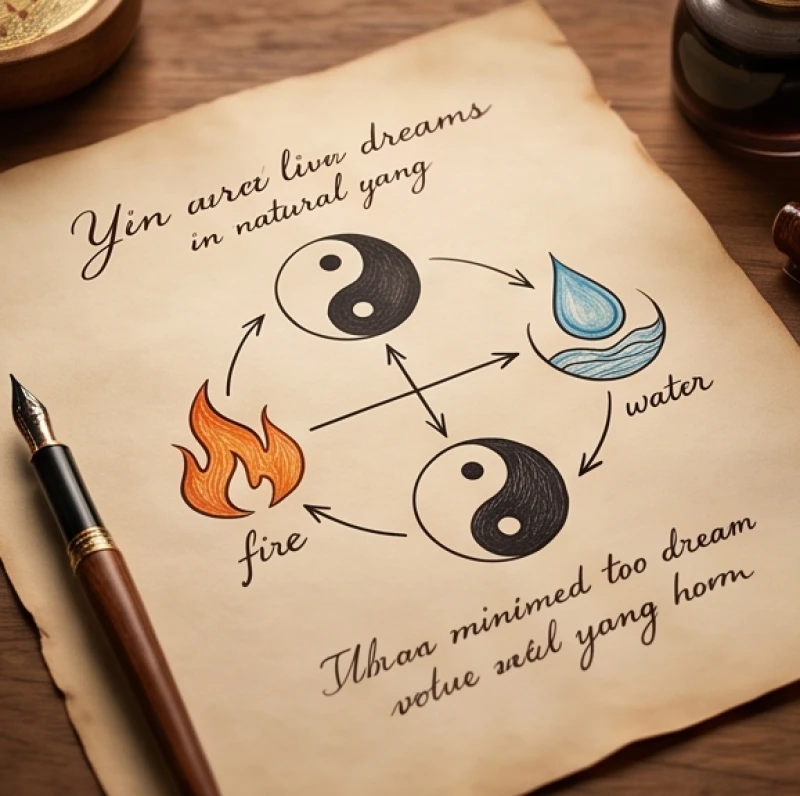 Yin liver dreams
in natural yang
water
fire
minimed too dream
votue yang horm